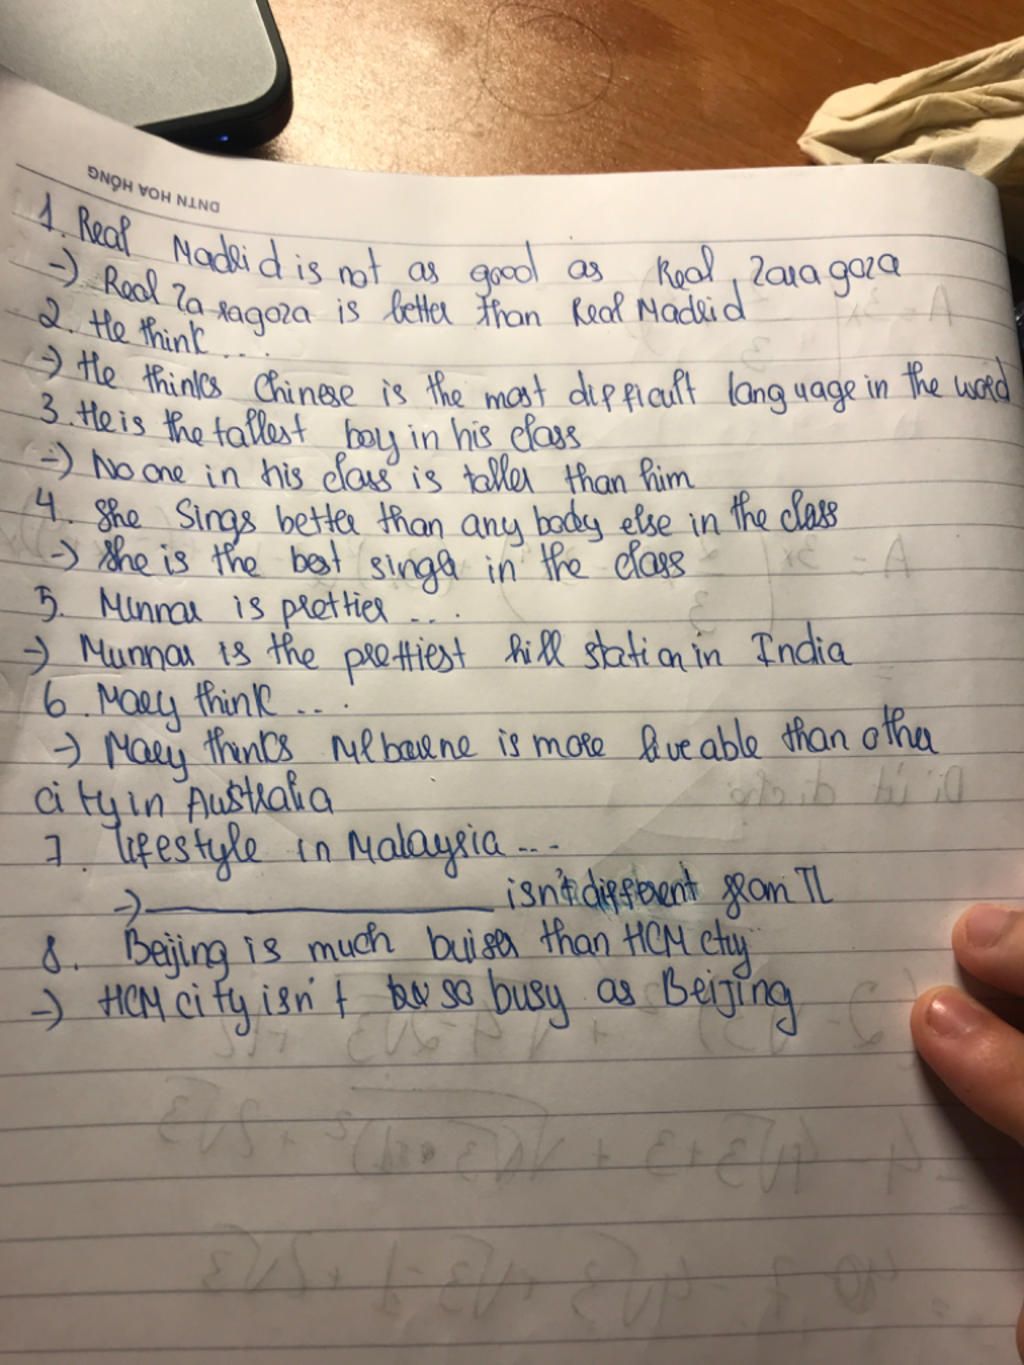 DNTN HOA HỒNG
1. Real Madrid is not as good as Real Zaragoza
-) Real Zaragoza is better than Real Madrid
2. He think ....
-) He thinks Chinese is the most difficult language in the word
3. He is the tallest boy in his class
-) No one in his class is taller than him
4. She Sings better than any body else in the class
-) She is the best singer in the class
5. Munnar is prettier ...
-) Munnar is the prettiest hill station in India
6. Mary think ...
-) Mary thinks Melbourne is more liveable than other
city in Australia
7. lifestyle in Malaysia ...
-) __________ isn't different from TL
8. Beijing is much buiser than HCM city
-) HCM city isn't so busy as Beijing